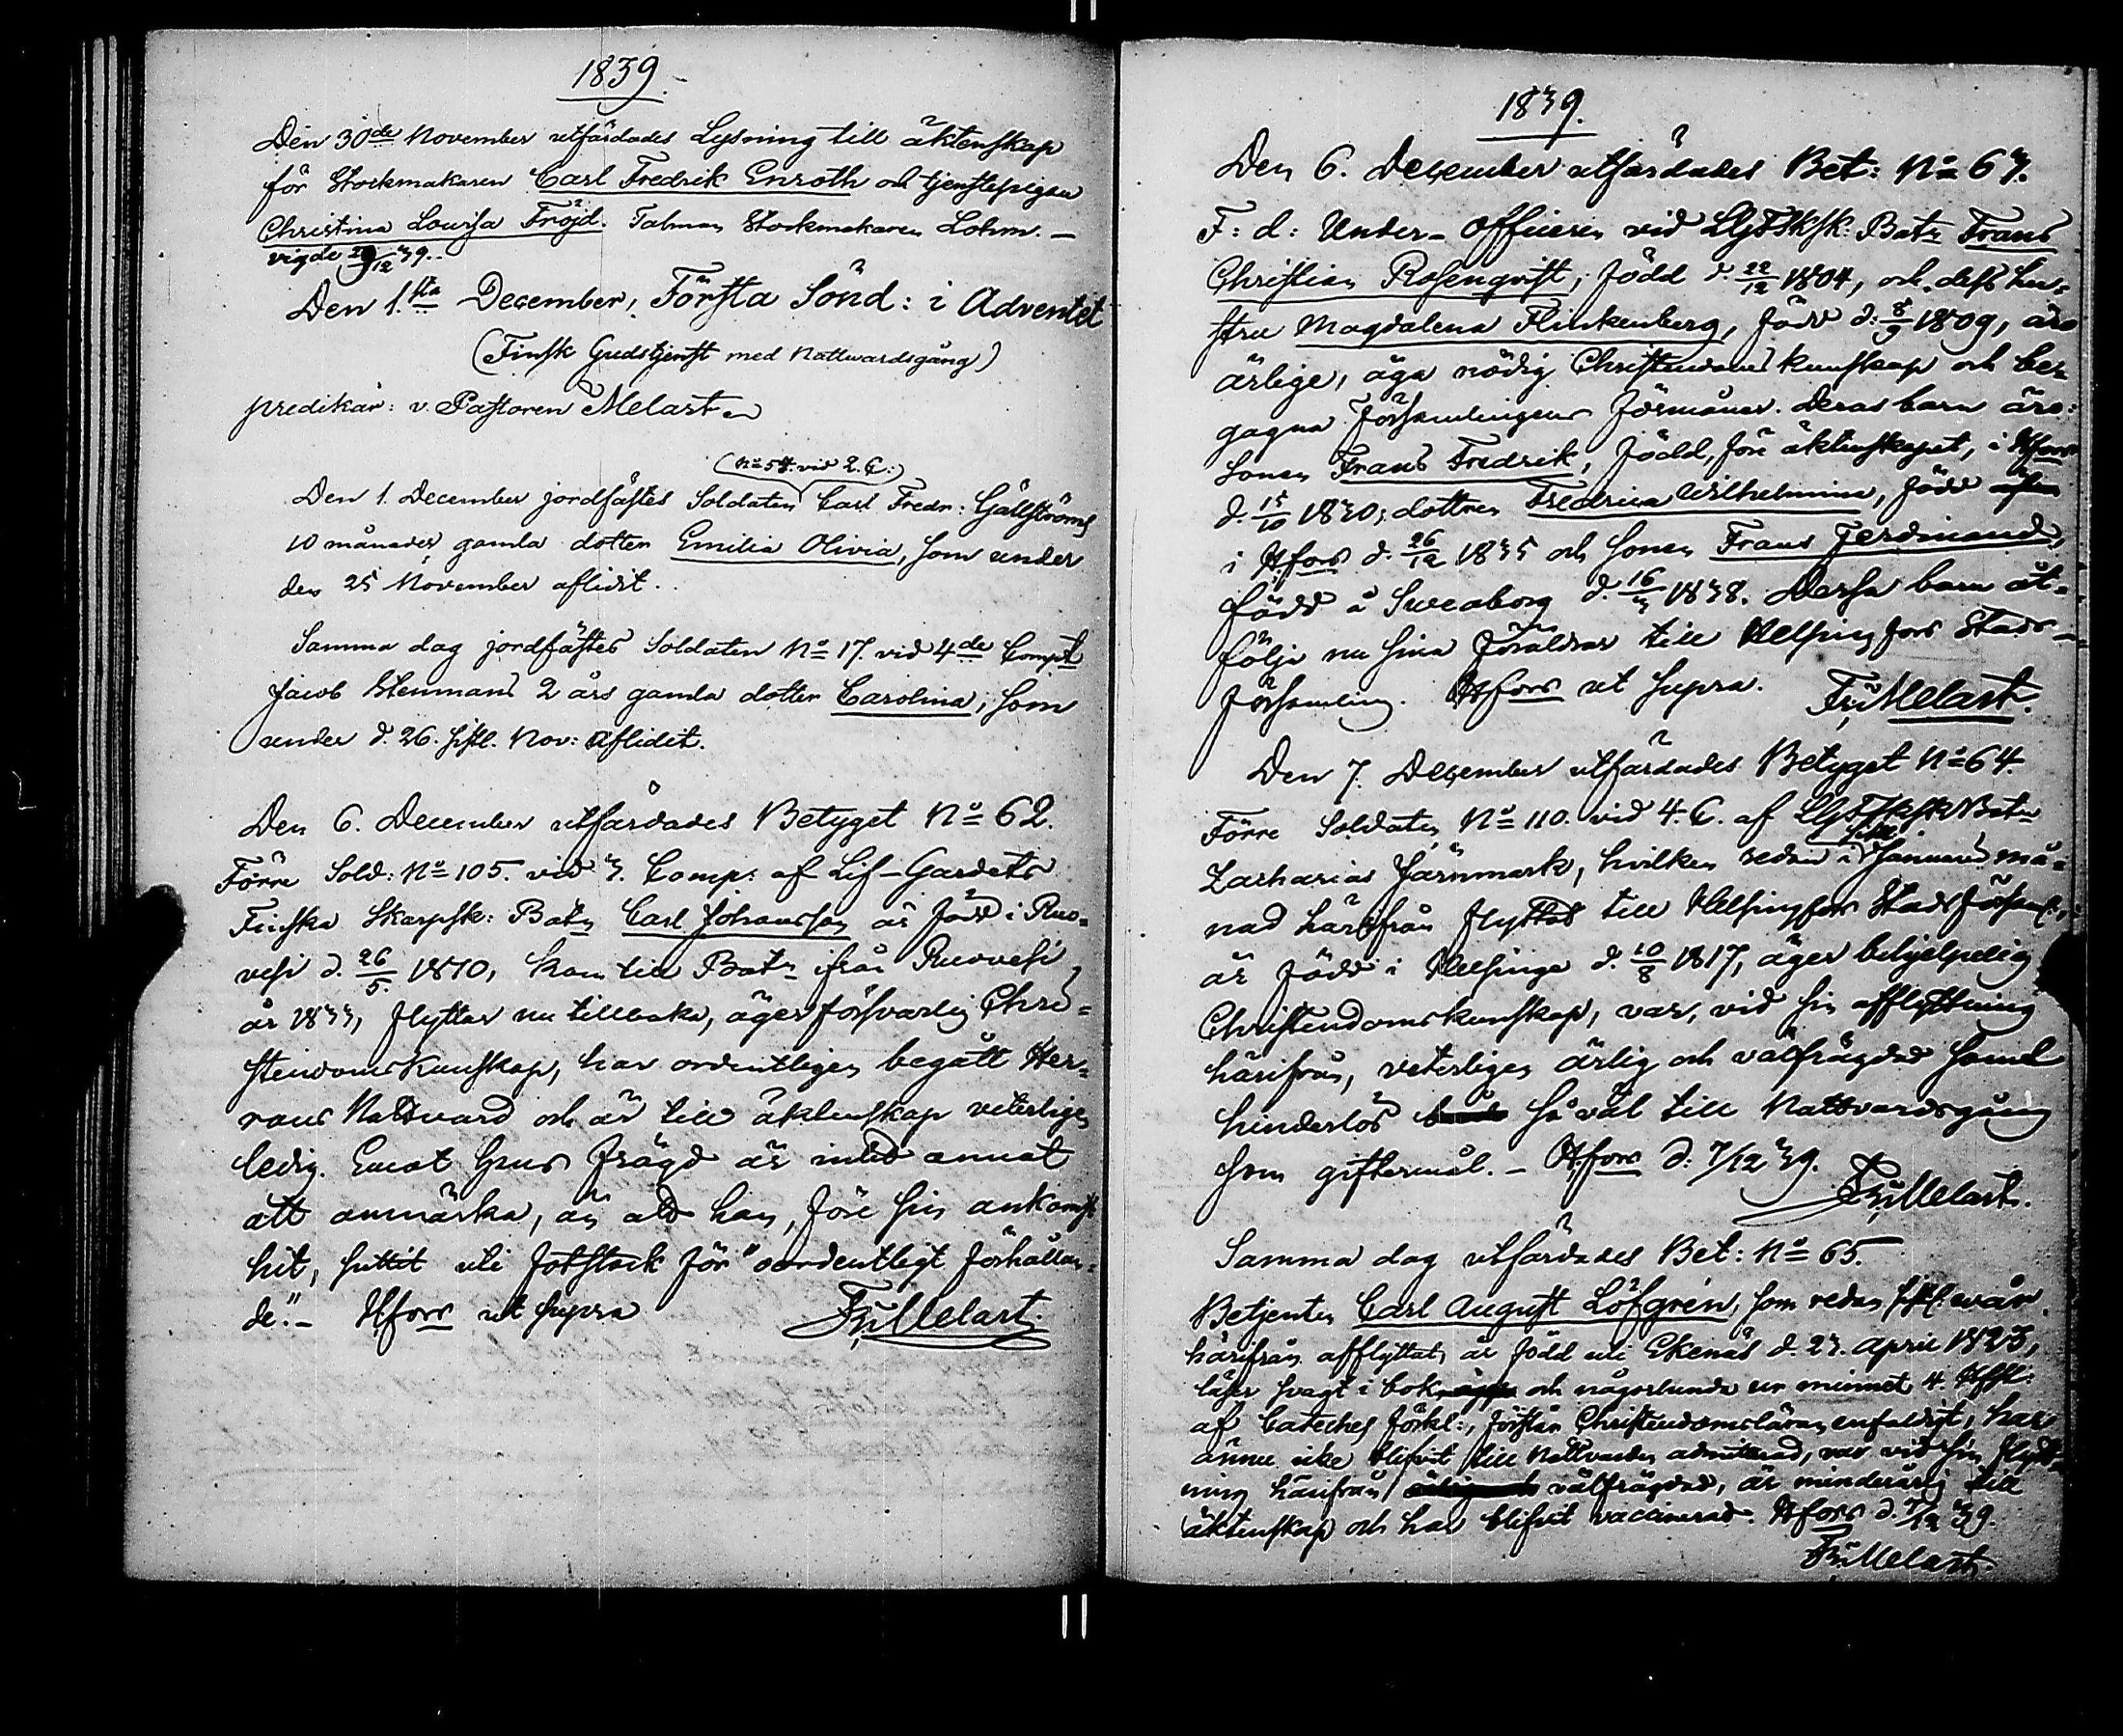 1839.
Den 30de November utfärdades Lysning till äktenskap
för Stockmakaren Carl Fredrik Enroth och tjenstepigan
Christina Lovisa Fröjd. Talman Stockmakaren Lohm. –
vigde 29/12 39.
Den 1.sta December, Första Sönd: i Adventet
(Finsk Gudstjenst med Nattvardsgång)
predikar: v. Pastoren Melart
(No 54. vid 2. C.)
Den 1. December jordfästes Soldaten Carl Fredr: Gällströms
10 månader gamla dotter Emilia Olivia, som under
den 25 November aflidit.
Samma dag jordfästes Soldaten No 17. vid 4de Compt
Jacob Stenmans 2 års gamla dotter Carolina, som
under d. 26. sistl. Nov: aflidit.
Den 6. December utfärdades Betyget No 62.
Förre Sold: No 105. vid 3. Comp: af Lif-Gardets
Finska Skarpsk: Batn Carl Johansson är född i Ruo-
vesi d. 26/5. 1810, kom till Batn ifrån Ruovesi
år 1833, flyttar nu tillbaka, äger försvarlig Chri-
stendomskunskap, har ordentligen begått Her-
rans Nattvard och är till äktenskap veterligen
ledig. Emot hans frägd är intet annat
att anmärka, än att han, före sin ankomst
hit, suttit uti fotstock för "oordentligt förhållan-
de". – Hfors ut supra Fr: Melart.
1839.
Den 6. December utfärdades Bet: No 63.
F: d: Under-Officeren vid LGFSksk: Batn Frans
Christian Rosenqvist, född d. 22/12 1804, och dess hu-
stru Magdalena Flinkenberg, född d: 8/9 1809, äro
ärlige, äga nödig Christendoms kunskap och be-
gagna Församlingens förmåner. Deras barn äro:
Sonen Frans Fredrik, född, före äktenskapet, i Hfors
d. 15/10 1830; dottren Fredrica Wilhelmina, född
i Hfors d. 26/12 1835 och sonen Frans Ferdinand,
född å Sveaborg d. 16/3 1838. Dessa barn åt-
följa nu sina föräldrar till Helsingfors Stads-
församling. Hfors ut supra. Fr: Melart.
Den 7. December utfärdades Betyget No 64.
Förre Soldaten No 110. vid 4. C. af LGFSksk Batn
sistl.
Zacharias Järnmark, hvilken redan i Januari må-
nad härifrån flyttat till Helsingfors Stads församl:,
är född i Helsinge d. 10/8 1817, äger behjelpelig
Christendomskunskap, var, vid sin afflyttning
härifrån, veterligen ärlig och välfrägdad samt
hinderlös så väl till Nattvardsgång
som giftermål. – Hfors d: 7/12 39.
Fr: Melart.
Samma dag utfärdades Bet: No 65.
Betjenten Carl August Löfgrén, som redan sistl. vår
härifrån afflyttat, är född uti Ekenäs d. 23. April 1823,
läser svagt i bok och någorlunda ur minnet 4. Hfst:
af Cateches förkl:, förstår Christendomsläran enfaldigt, har
ännu icke blifvit till Nattvarden admitterad, var vid sin flytt-
ning härifrån välfrägdad, är minderårig till
äktenskap och har blifvit vaccinerad. Hfors d. 7/12 39.
Fr: Melart.